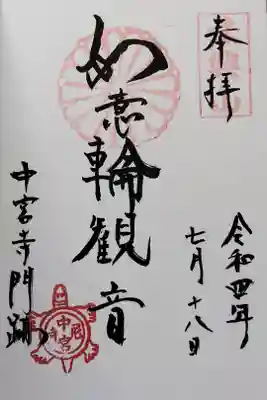 奉拝
令和四年
七月十八日
如意輪観音
中宮寺門跡
中宮